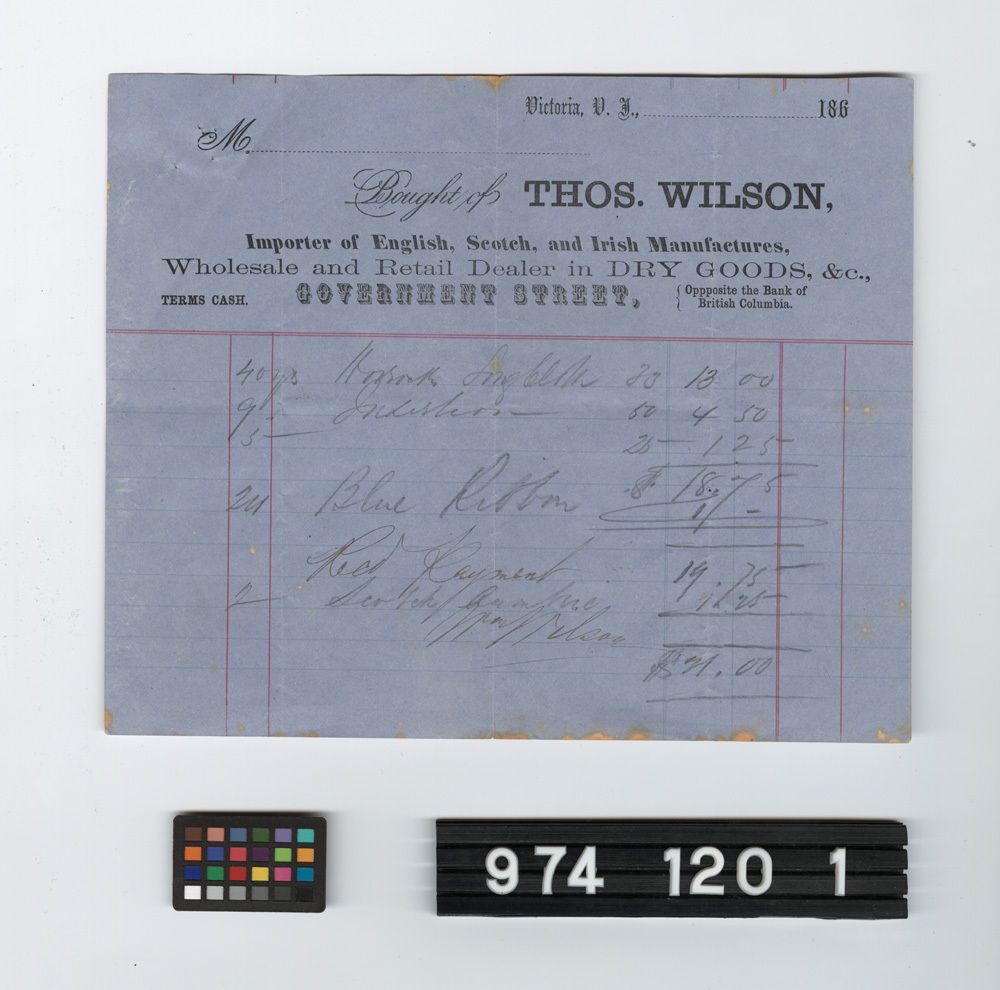 Victoria, V. I., 186
M.
Bought of THOS. WILSON,
Importer of English, Scotch, and Irish Manufactures,
Wholesale and Retail Dealer in DRY GOODS, &c.,
TERMS CASH. GOVERNMENT STREET, { Oppposite the Bank of
British Columbia.
40 13 00
9 Insertion 50 4 50
5 25 1.25
$ 18.75
24 Blue Ribbon 1 -
Recd Payment 19.75
2 Scotch 1.25
Wilson
$21.00
974 120 1